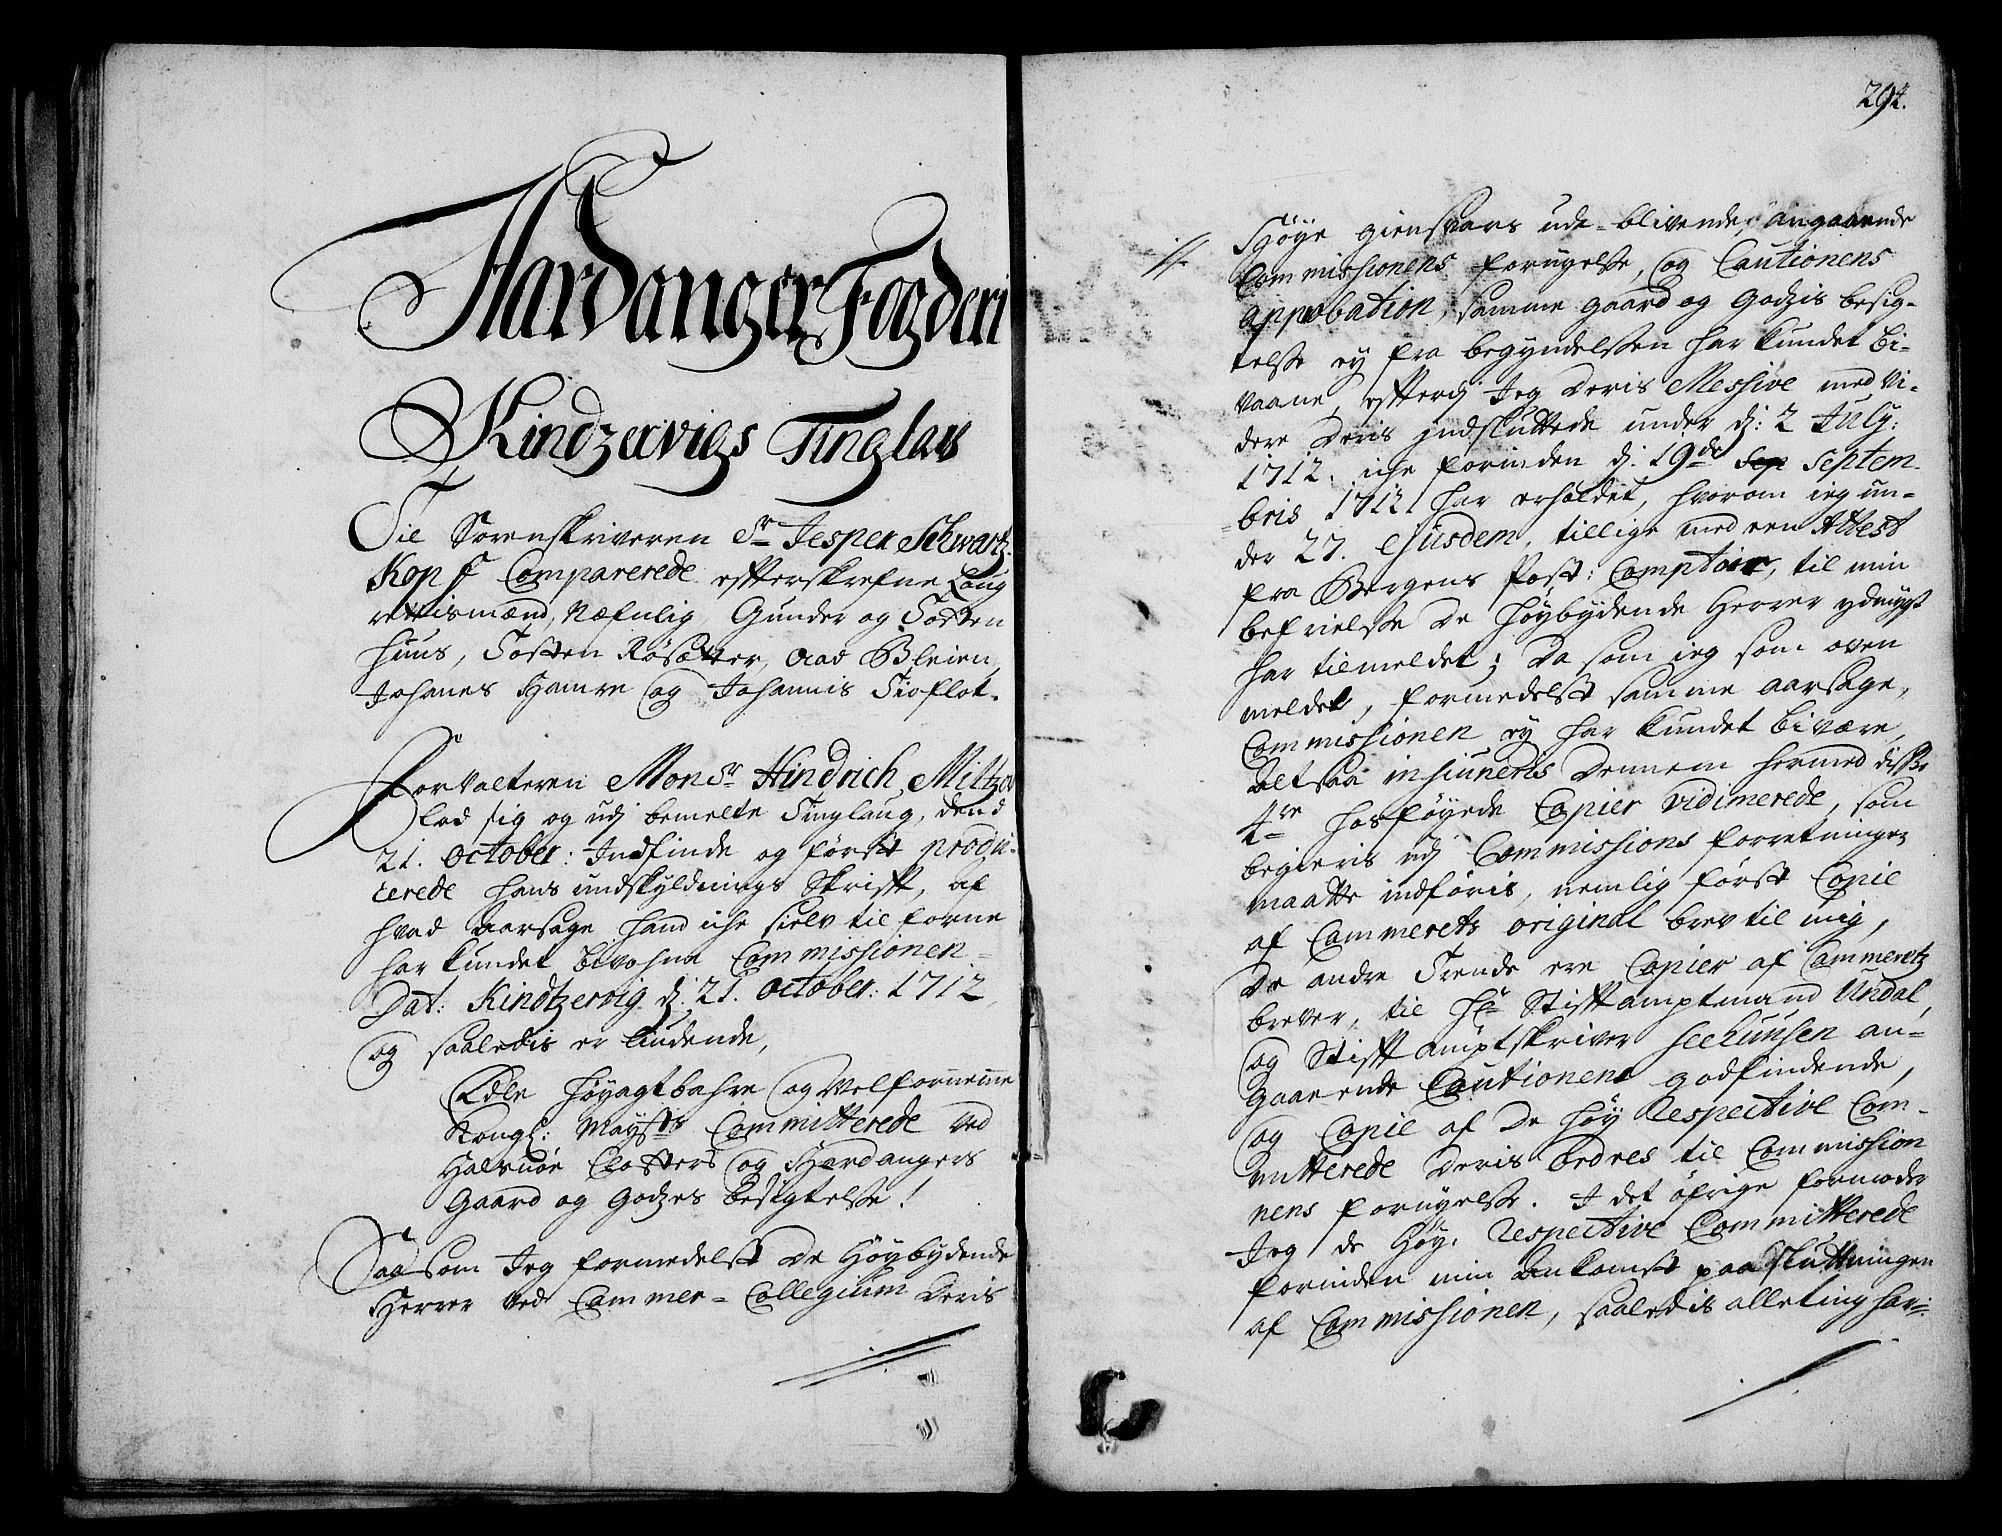 Hardanger Fogderi
Kindzervigs Tinglav
Til Sorenskriveren Sr Jesper Schwartz
Kopf Comparerede efterskrefne Laug
rettismænd, Næfnlig Gunder og Torsten
Huus, Tosten Røsætter, Aad Bleien,
Johanes Hamre og Johannis Tioflot.
Forvalteren Monsr Hindrich Miltzov
lod sig og udj bemelte Tinglaug, dend
21. October: Indfinde og først produ-
cerede hans undskyldnings Skrift, af
hvad Aarsage hand iche sielv tilforne
har kundet bivohne Commissionen
Dat: Kindtzervig dj. 21. October: 1712
og saaledis er liudende,
Edle Høyagtbahre og Velfornemme
Kongl: Maysts Committerede ved
Halsnöe Closters og Hardangers
Gaard og Godzes besigtelse!
Saasom Jeg formedelst De Høybydende
Herrer ved Cammer-Collegium Deris
294.
Høye giensvars ude-blivende, angaaende
Commissionens fornyelse, og Cautionens
approbation, samme gaard og Godzis besig-
telse ej fra begyndelsen har kundet bi-
vaane, efterdj Jeg Deris Messive med vi-
dere Deris indsluttede under dj: 2 July:
1712. iche forinden dj. 19de Sep Septem-
bris 1712 har erholdet, hvorom ieg un-
der 27. Ejusdem, tillige med een Attest
fra Bergens Post: Comptoir, til min
befrielse De høybydende Herrer ydmygst
har tilmeldet; Da som ieg som oven
meldet, formedelst samme aarsage,
Commissionen ej har kundet bivære,
Altsaa insinueris Dennem hermed disse
4re hosføyede Copier vidimerede, som
begieris udj Commissions forretningen
maatte indføris, nemlig først Copie
af Cammerets original brev til mig,
De andre Trende ere Copier af Cammeretz
brever, til Hr Stiftamptmand Undal,
og Stiftamptskriver Seehuusen an-
gaaende Cautionens godfindende,
og Copie af De høy Respective Com-
mitterede Deris Ordres til Commission
nens fornyelse. I det öfrige formoder
Jeg de Høy. Respective Committerede
forinden min Ankomst paa Sluttningen
af Commissionen, saaledis alleting har